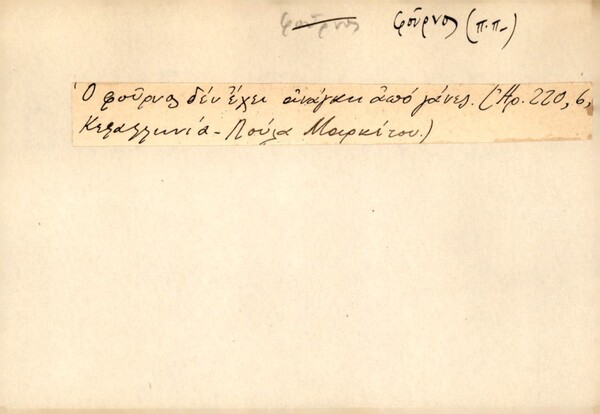 φοῦρνος φοῦρνος (π.π.)
Ὁ φοῦρνος δέν ἔχει ἀνάγκη ἀπό γάνες. (Ἀρ. 220, 6,
Κεφαλληνία - Λούλα Μαρκέτου.)